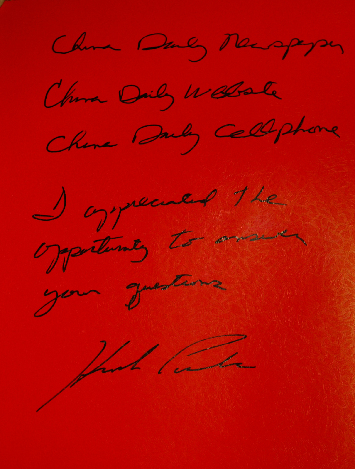 China Daily Newspaper
China Daily Website
China Daily Cellphone
I appreciated the
opportunity to answer
your questions